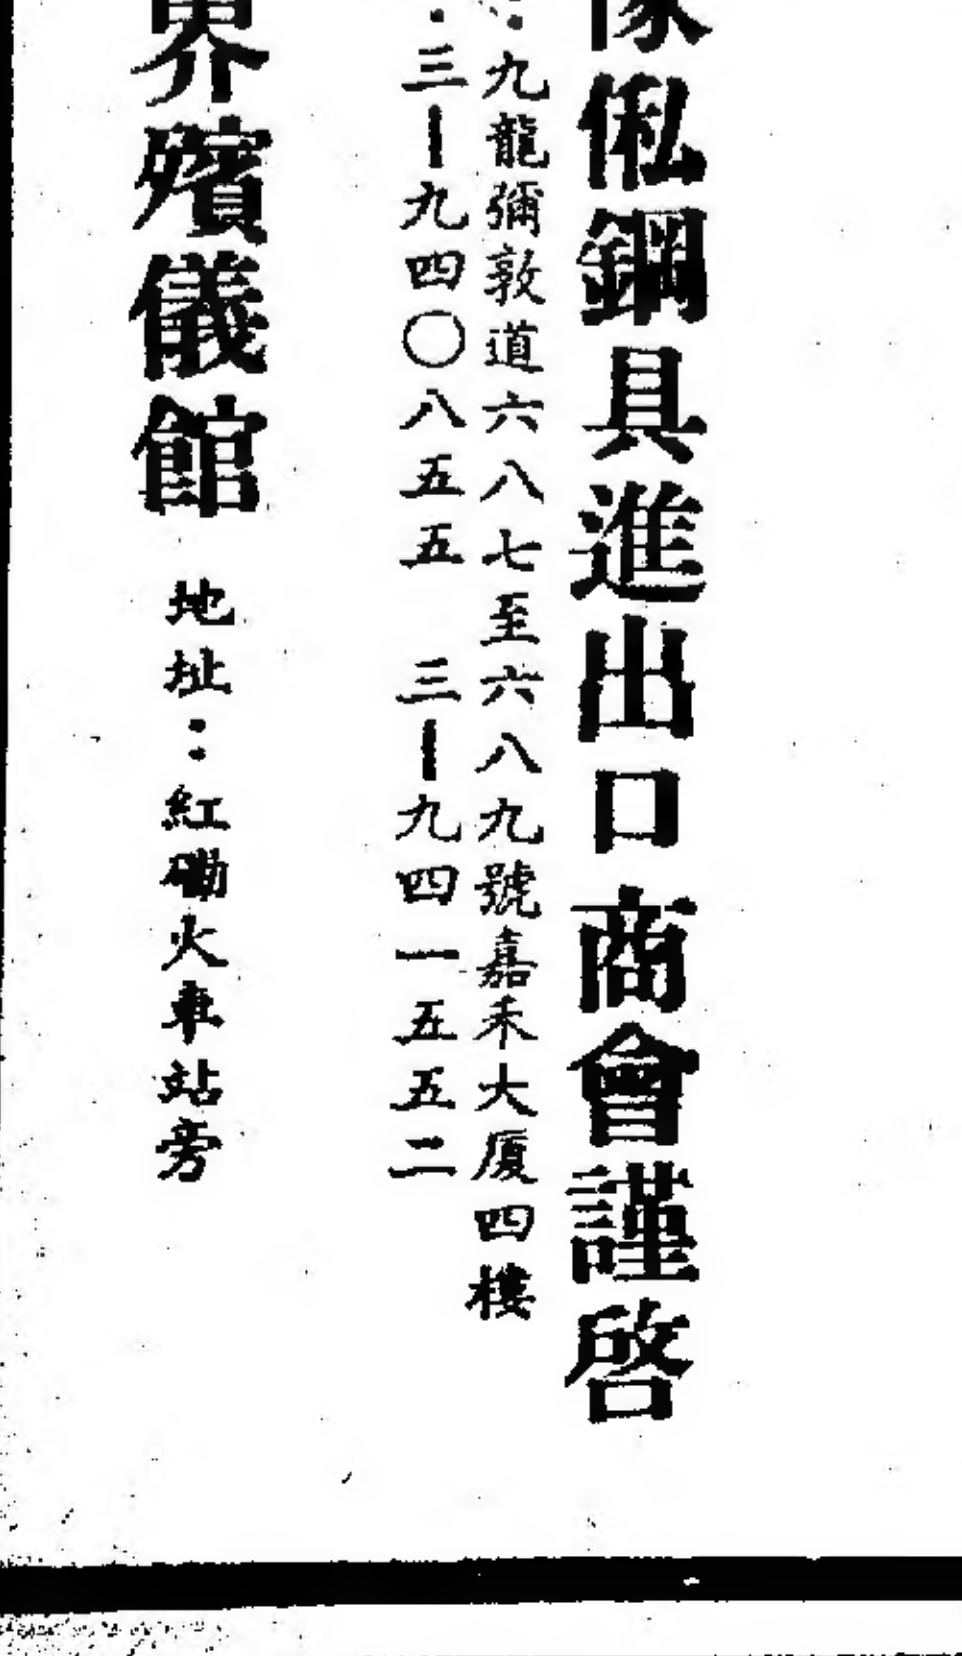 傢俬鋼具進出口商會謹啓
：九龍彌敦道六八七至六八九號嘉禾大廈四樓
：三－九四〇八五五　三－九四一五五二
界殯儀館　地址：紅磡火車站旁